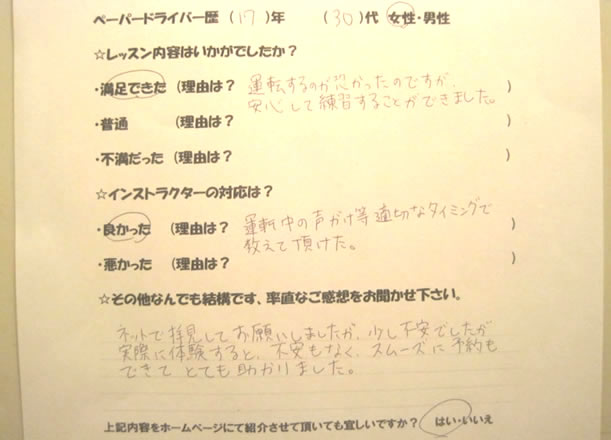 ペーパードライバー歴 (17)年 (30)代 女性・男性
☆レッスン内容はいかがでしたか?
・満足できた (理由は? 運転するのが恐かったのですが、
安心して練習することができました。)
・普通 (理由は? )
・不満だった (理由は? )
☆インストラクターの対応は?
・良かった (理由は? 運転中の声かけ等適切なタイミングで
教えて頂けた。)
・悪かった (理由は? )
☆その他なんでも結構です、率直なご感想をお聞かせ下さい。
ネットで拝見してお願いしましたが、少し不安でしたが
実際に体験すると、不安もなく、スムーズに予約も
できてとても助かりました。
上記内容をホームページにて紹介させて頂いても宜しいですか? はい・いいえ